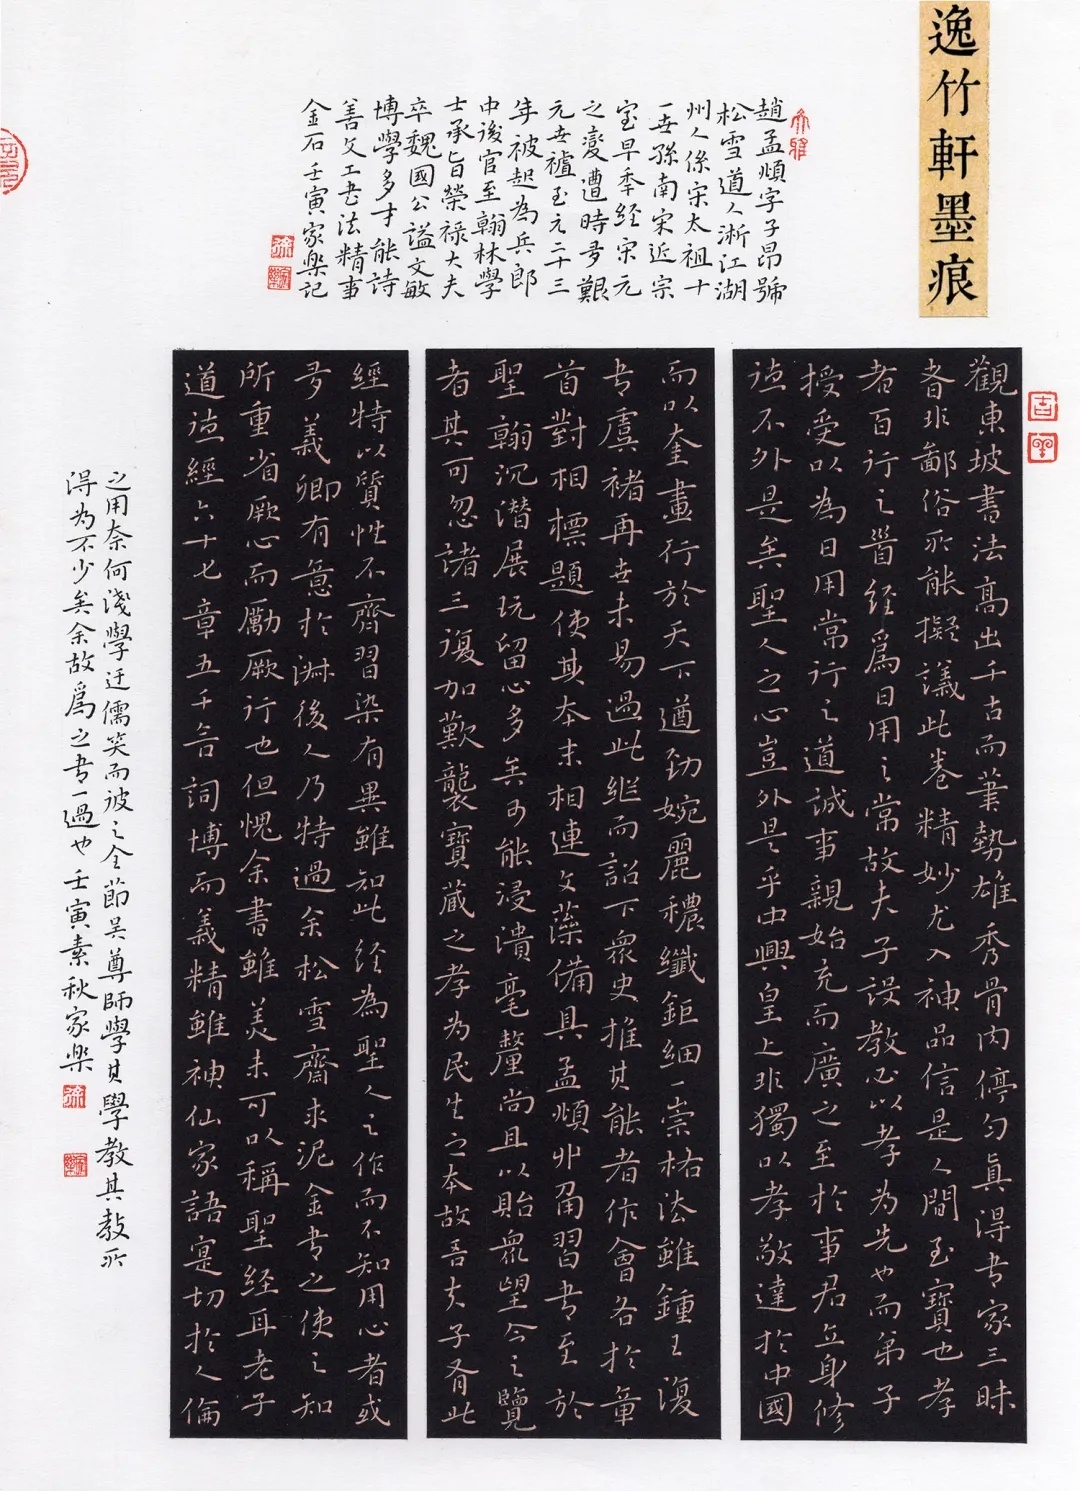 逸竹軒墨痕
趙孟頫字子昂號
松雪道人浙江湖
州人係宋太祖十
一世孫南宋近宗
室早年经宋元
之變遭時多艱
元世祖至元二十三
年被起為兵郎
中後官至翰林學
士承旨榮禄大夫
卒魏國公謚文敏
博學多才能詩
善文工书法精事
金石壬寅家樂记
觀東坡書法高出千古而筆勢雄秀骨肉停匀真得书家三昧
者非鄙俗所能擬議此卷精妙尤入神品信是人間至寶也孝
者百行之首经為日用之常故夫子設教必以孝为先也而弟子
授受以為日用常行之道誠事親始充而廣之至於事君立身修
德不外是矣聖人之心豈外是乎中興皇上非獨以孝敬達於中國
而以奎畫行於天下遒劲婉麗穠纖鉅細一崇枯法雖鍾王復
书虞褚再世未易過此继而詔下衆史推其能者作會各於章
首對相標題使其本末相連文藻備具孟頫非甭習书至於
聖翰沉潜展玩留心多矣可能浸漬毫釐尚且以貽衆望今之覽
者其可忽諸三復加歎襲寶藏之孝为民生之本故吾夫子有此
經特以質性不齊習染有異雖知此经為聖人之作而不知用心者或
多義卿有意於淑後人乃特過余松雪齋求泥金书之使之知
所重省厥心而勵厥行也但愧余書雖美未可以稱聖经耳老子
道德經六十七章五千言詞博而義精雖神仙家語寔切於人倫
之用奈何淺學迂儒笑而彼之全節吴尊師學其學教其教所
得为不少矣余故爲之书一過也壬寅素秋家樂